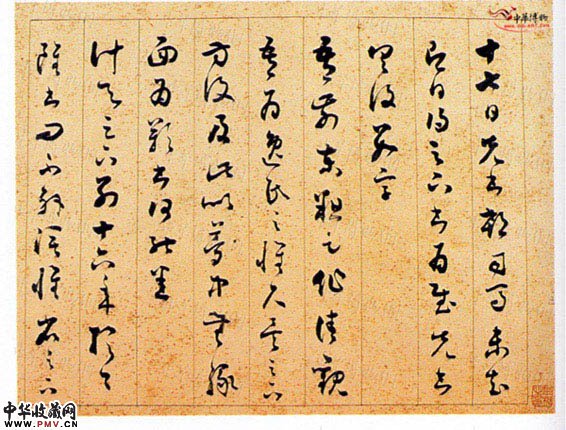 十七日先書郗司馬未去
即日得足下書為慰先書
具復數字
吾前東粗足作佳觀
吾為逸民之懷久矣足下
方復及此似夢中無緣
面為歎書何能悉
計與足下別十六年於今
雖書問不解闊懷省足下
中華博物
中华收藏网
www.PMV.cn